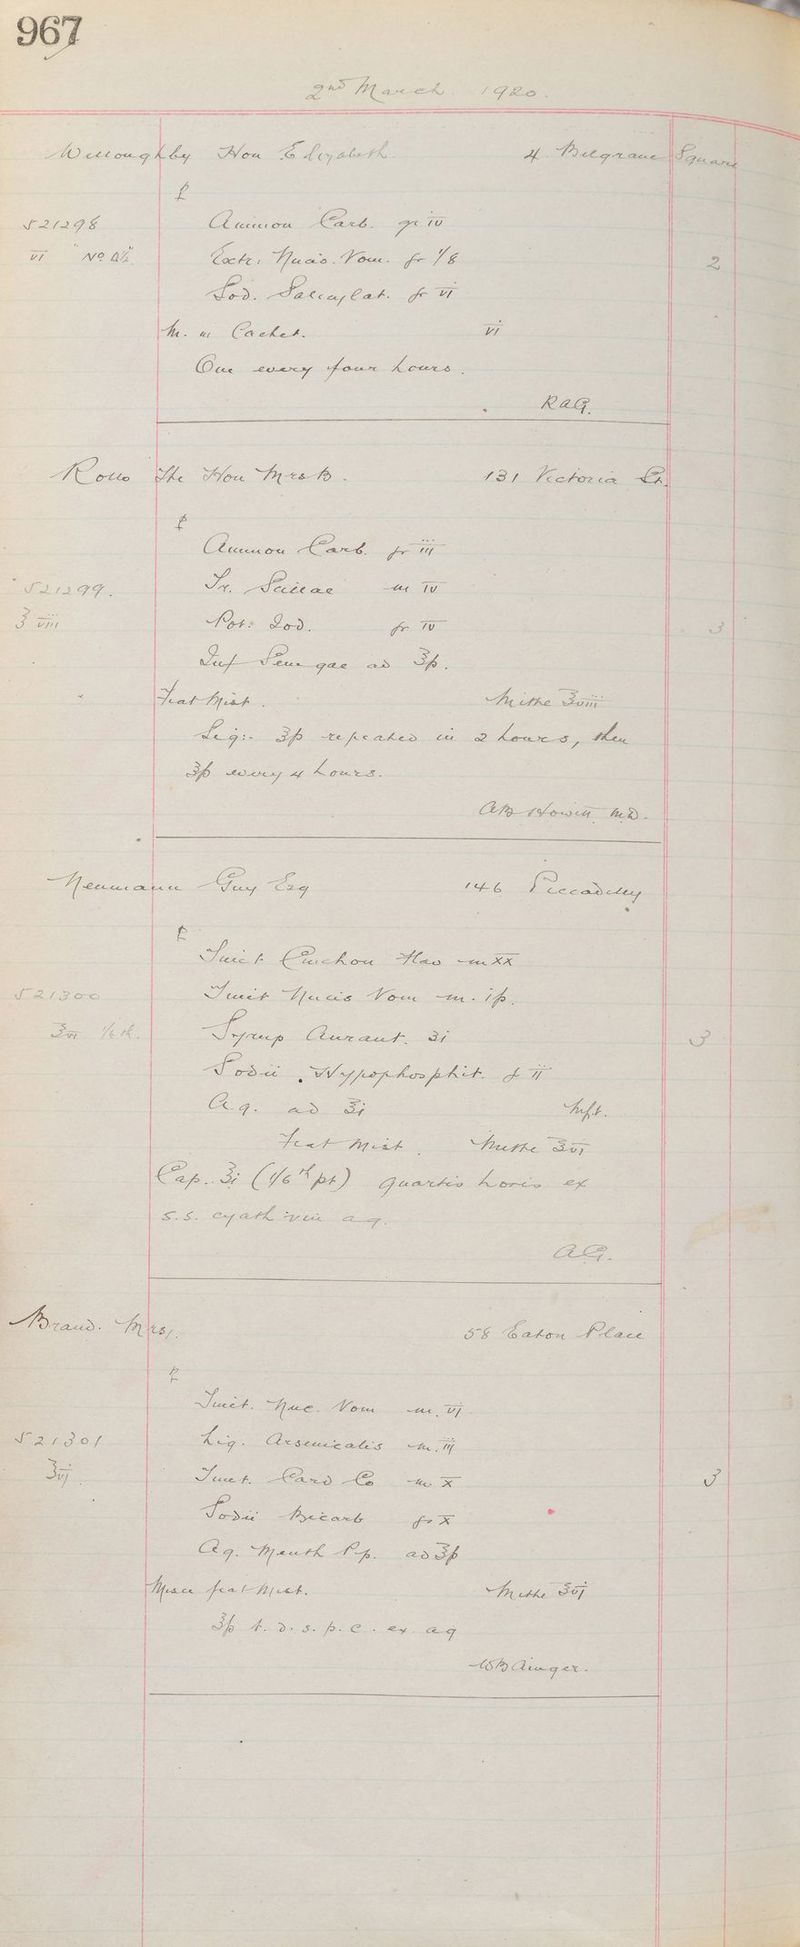 967
2nd March 1920.
Willoughby Hon Elizabeth 4 Belgrave Square
℞
521298 Ammon Carb. gr iv
vi No 0½ Extr. Nucis. Vom. gr 1/8 2
Sod. Salicylat. gr vi
M. in Cachet. vi
One every four hours.
R.A.G.
Rollo The Hon Mrs B. 131 Victoria St.
℞
Ammon Carb. gr iii
521299. Tr. Scillae m iv
℥ viii Pot: Iod. gr iv 3
Inf Senegae ad ℥ß.
Fiat Mist. Mitte ℥viii
Sig:- ℥ß repeated in 2 hours, then
℥ß every 4 hours.
AB Howitt M.D.
Neumann Guy Esq 146 Piccadilly
℞
Tinct Cinchon Flav m xx
521300 Tinct Nucis Vom m. iß.
℥vi 1/6th. Syrup Aurant. ʒi 3
Sodii Hypophosphit. gr ii
Aq. ad ℥i Mft.
Fiat Mist. Mitte ℥vi
Cap. ℥i (1/6th pt) quartis horis ex
s.s. cyath: vin aq.
A.G.
Brand. Mrs/. 58 Eaton Place
℞
Tinct. Nuc. Vom m. vi
521301 Liq. Arsenicalis m. iii
℥vi Tinct. Card Co m x 3
Sodii Bicarb gr x
Aq. Menth Pip. ad ℥ß
Misce fiat Mist. Mitte ℥vi
℥ß t.d.s. p.c. ex aq
WB Ainger.